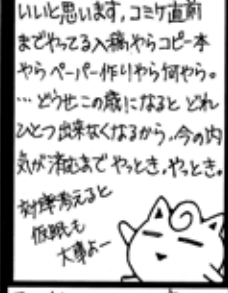 いいと思います,コミケ直前
までやってる入稿やらコピー本
やらペーパー作りやら何やら。
…どうせこの歳になると どれ
ひとつ出来なくなるから,今の内
気が済むまで やっとき,やっとき。
効率考えると
仮眠も
大事よー